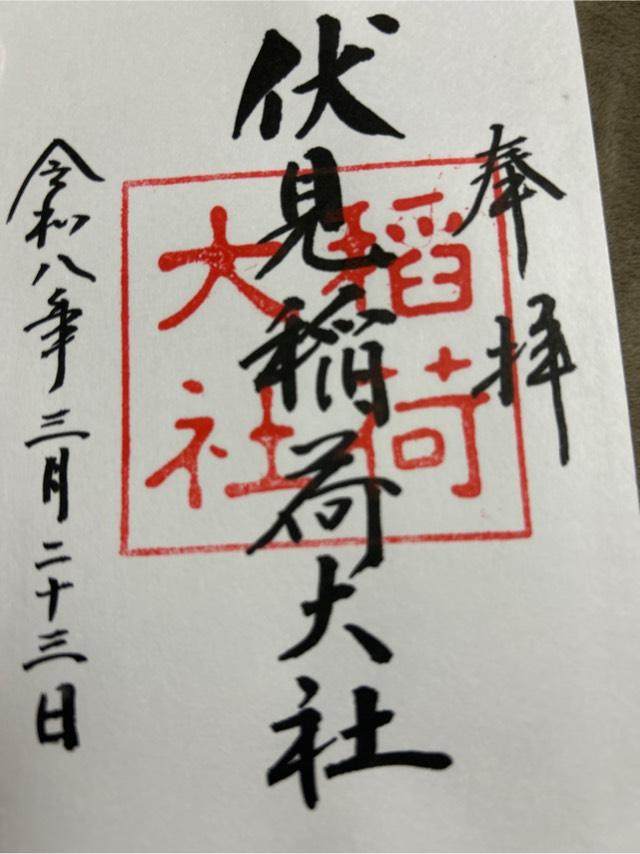 奉拝
伏見稲荷大社
稲荷
大社
令和八年三月二十三日